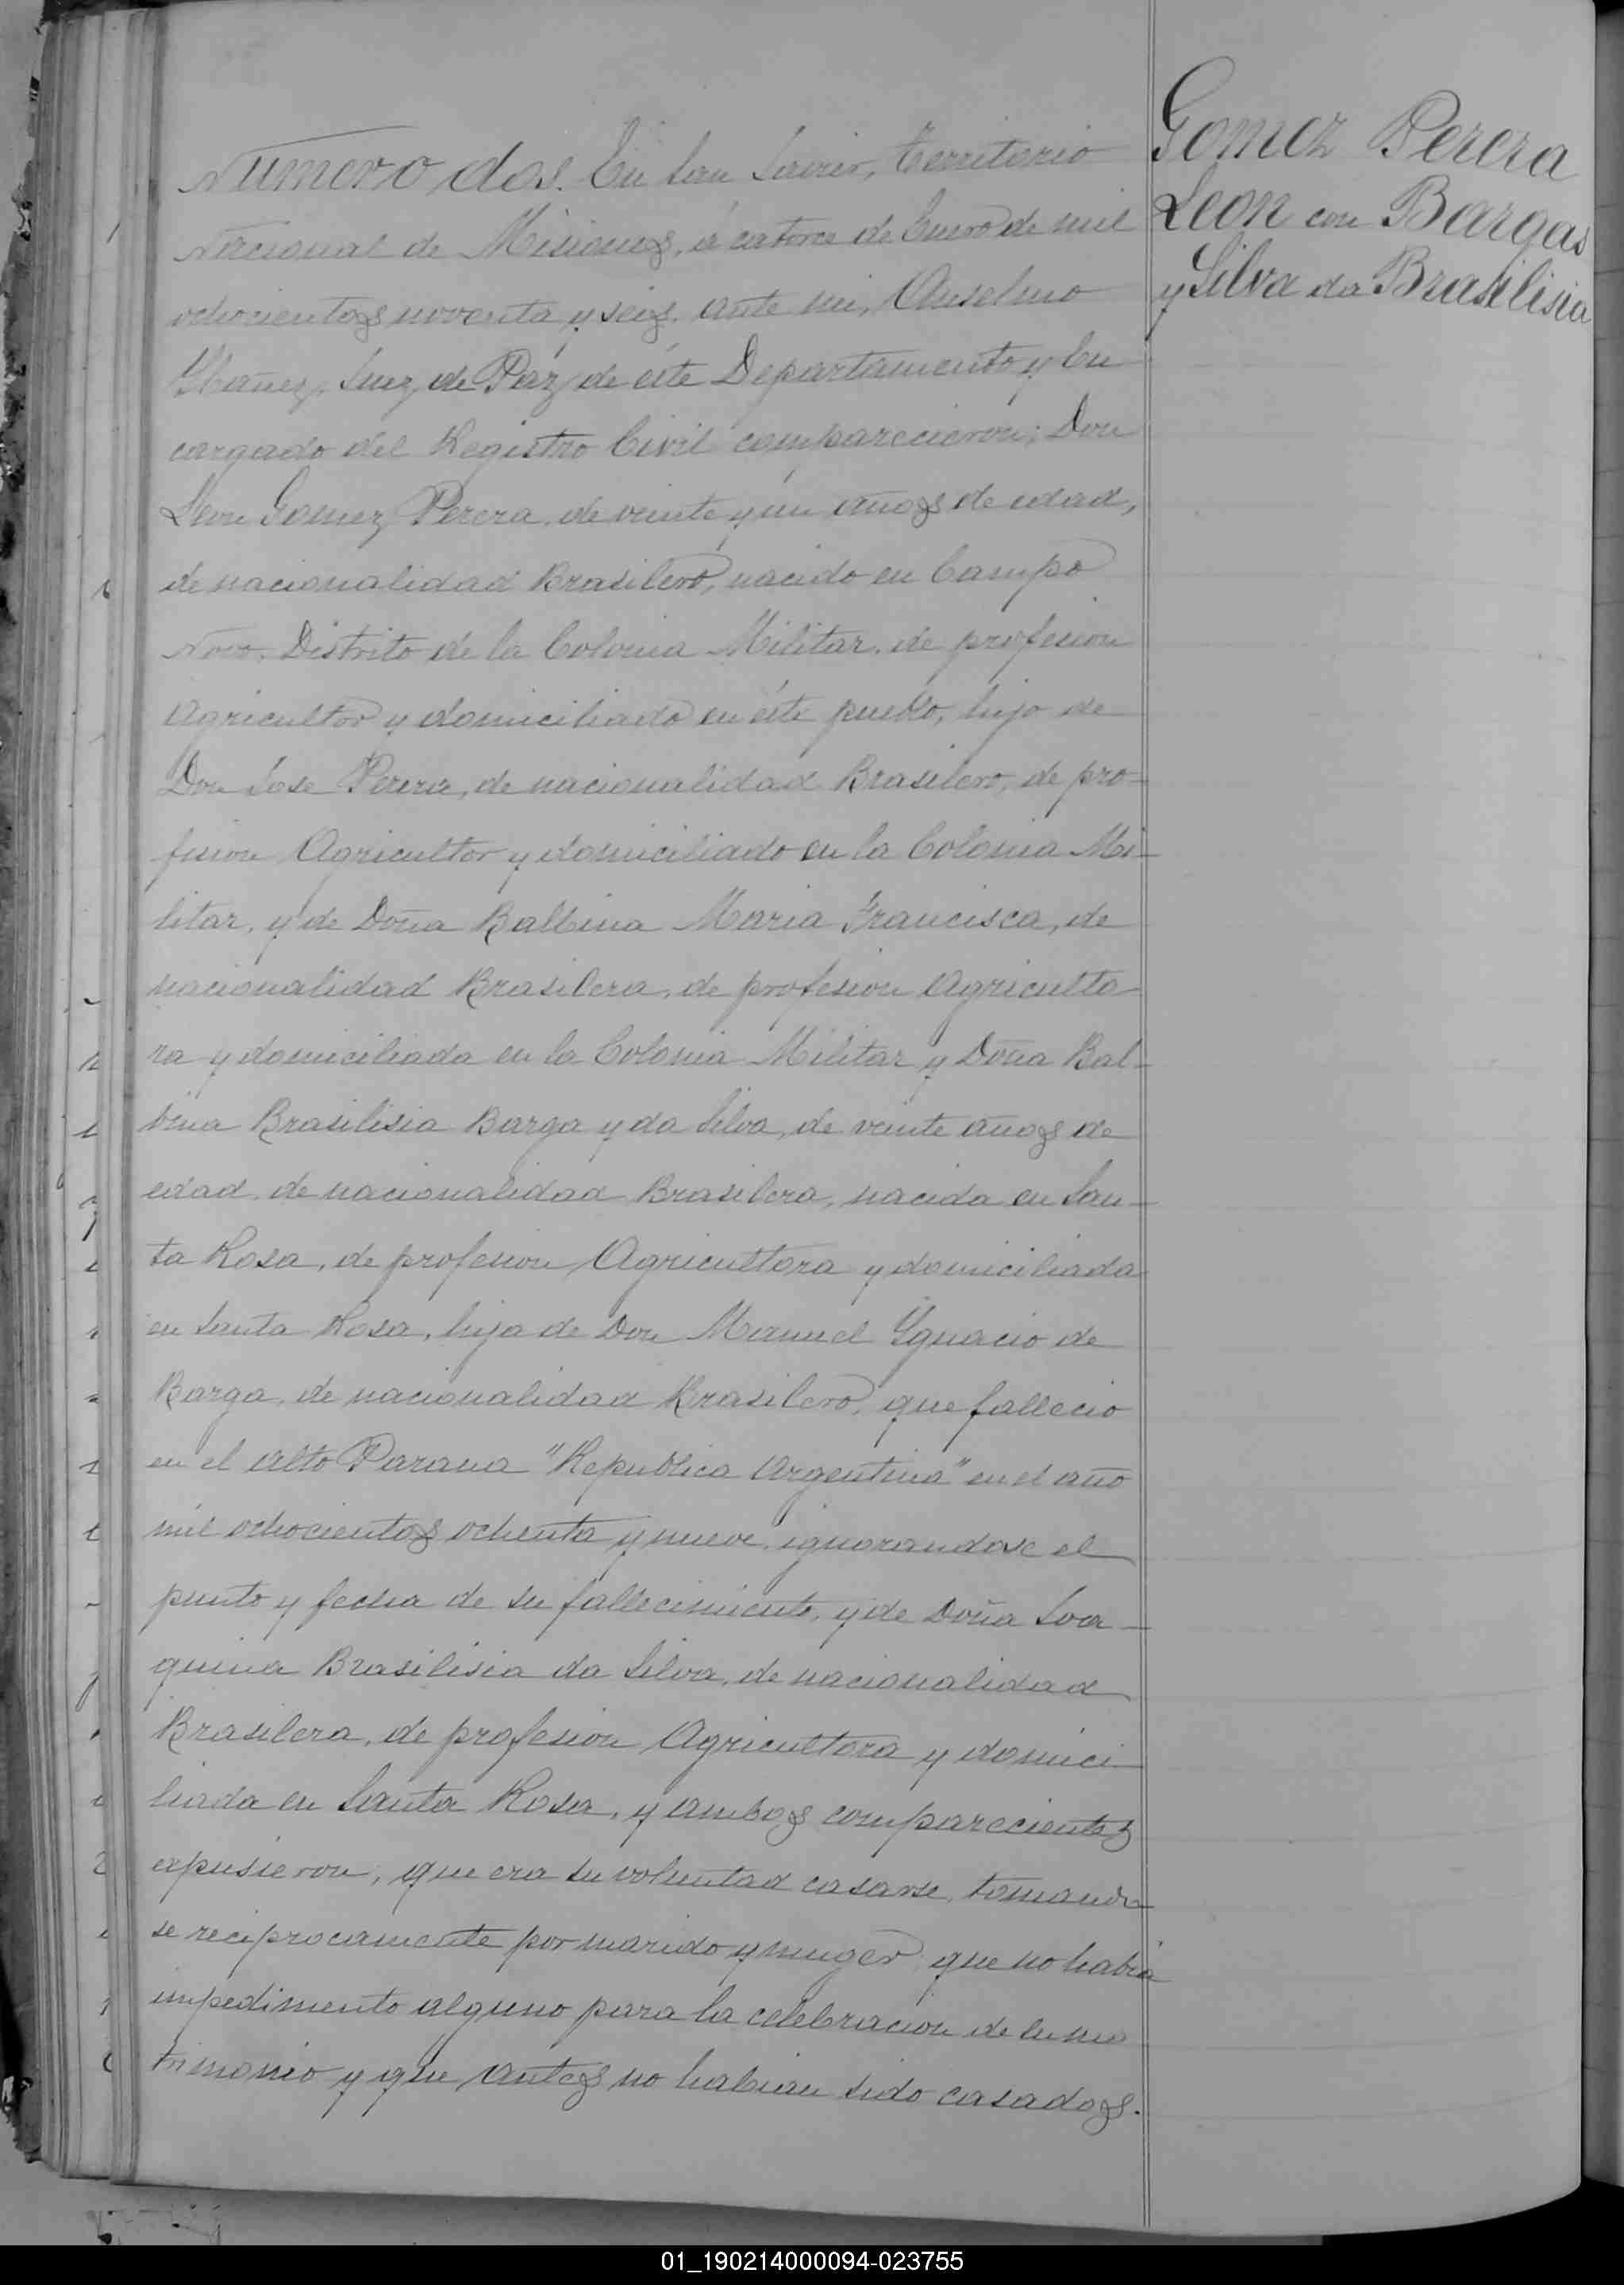 Numero dos. En San Javier, Territorio
Nacional de Misiones, á catorce de Enero de mil
ochocientos noventa y seis, ante mi, Anselmo
Ybañez, Juez de Paz de éste Departamento y En
cargado del Registro Civil comparecieron; Don
Leon Gomez Perera, de veinte y un años de edad,
de nacionalidad Brasilero, nacido en Campo
Novo, Distrito de la Colonia Militar, de profesion
Agricultor y domiciliado en éste pueblo, hijo de
Don Jose Perera, de nacionalidad Brasilero, de pro-
fesion Agricultor y domiciliado en la Colonia Mi-
litar, y de Doña Balbina Maria Francisca, de
nacionalidad Brasilera, de profesion Agriculto
ra y domiciliada en la Colonia Militar y Doña Bal-
bina Brasilisia Barga y da Silva, de veinte años de
edad, de nacionalidad Brasilera, nacida en San-
ta Rosa, de profesion Agricultora y domiciliada
en Santa Rosa, hija de Don Manuel Ygnacio de
Barga, de nacionalidad Brasilero, que fallecio
en el Alto Parana "Republica Argentina" en el año
mil ochocientos ochenta y nueve, ignorandose el
punto y fecha de su fallecimiento, y de Doña Joa-
quina Brasilisia da Silva, de nacionalidad
Brasilera, de profesion Agricultora y domici-
liada en Santa Rosa, y ambos comparecientes
expusieron; que era su voluntad casarse, tomando
se reciprocamente por marido y muger, que no habia
impedimento alguno para la celebracion de su ma
trimonio y que antes no habian sido casados.
Gomez Perera
Leon con Bargas
y Silva da Brasilisia
01_190214000094-023755